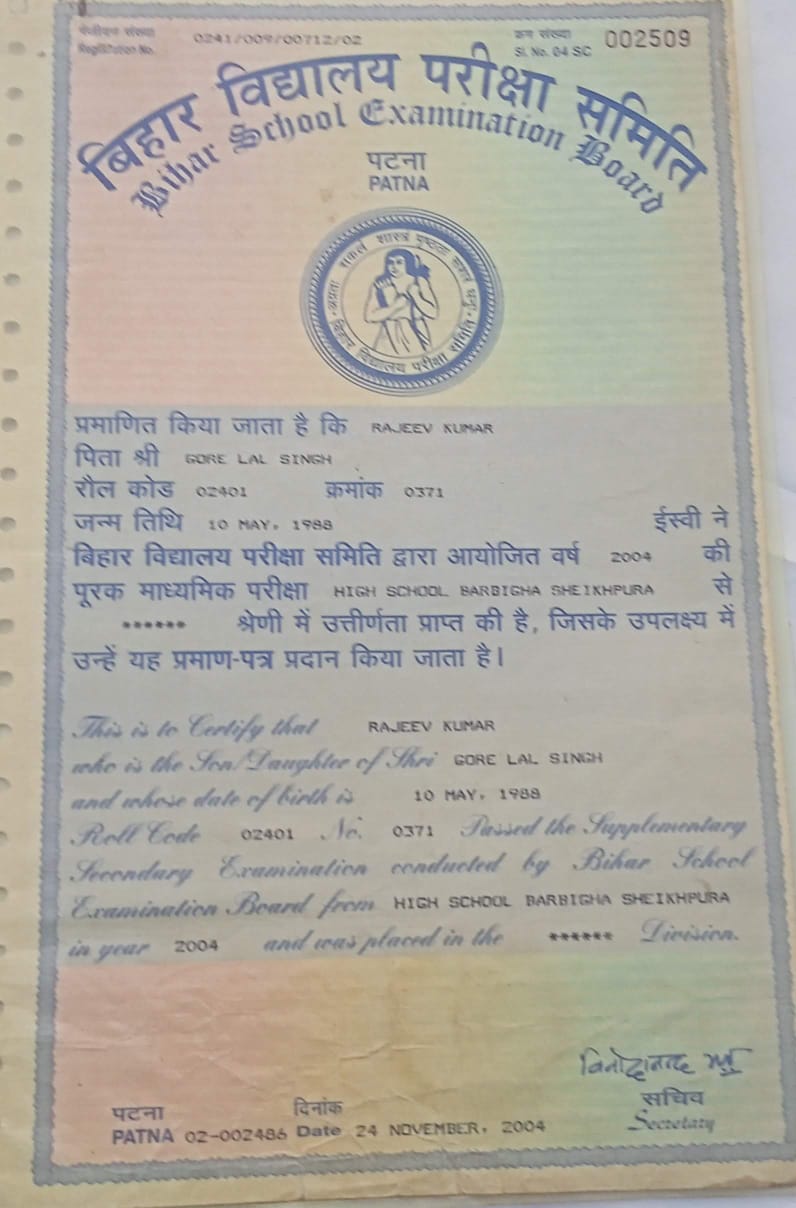 पंजीयन संख्या
Registration No.
0241/009/00712/02
क्रम संख्या
Sl. No. 04 SC
002509
बिहार विद्यालय परीक्षा समिति
Bihar School Examination Board
पटना
PATNA
बिहार विद्यालय परीक्षा समिति
प्रमाणित किया जाता है कि RAJEEV KUMAR
पिता श्री GORE LAL SINGH
रौल कोड 02401 क्रमांक 0371
जन्म तिथि 10 MAY, 1988 ईस्वी ने
बिहार विद्यालय परीक्षा समिति द्वारा आयोजित वर्ष 2004 की
पूरक माध्यमिक परीक्षा HIGH SCHOOL BARBIGHA SHEIKHPURA से
****** श्रेणी में उत्तीर्णता प्राप्त की है, जिसके उपलक्ष्य में
उन्हें यह प्रमाण-पत्र प्रदान किया जाता है।
This is to Certify that RAJEEV KUMAR
who is the Son/Daughter of Shri GORE LAL SINGH
and whose date of birth is 10 MAY, 1988
Roll Code 02401 No. 0371 Passed the Supplementary
Secondary Examination conducted by Bihar School
Examination Board from HIGH SCHOOL BARBIGHA SHEIKHPURA
in year 2004 and was placed in the ****** Division.
सचिव
Secretary
पटना दिनांक
PATNA 02-002486 Date 24 NOVEMBER, 2004